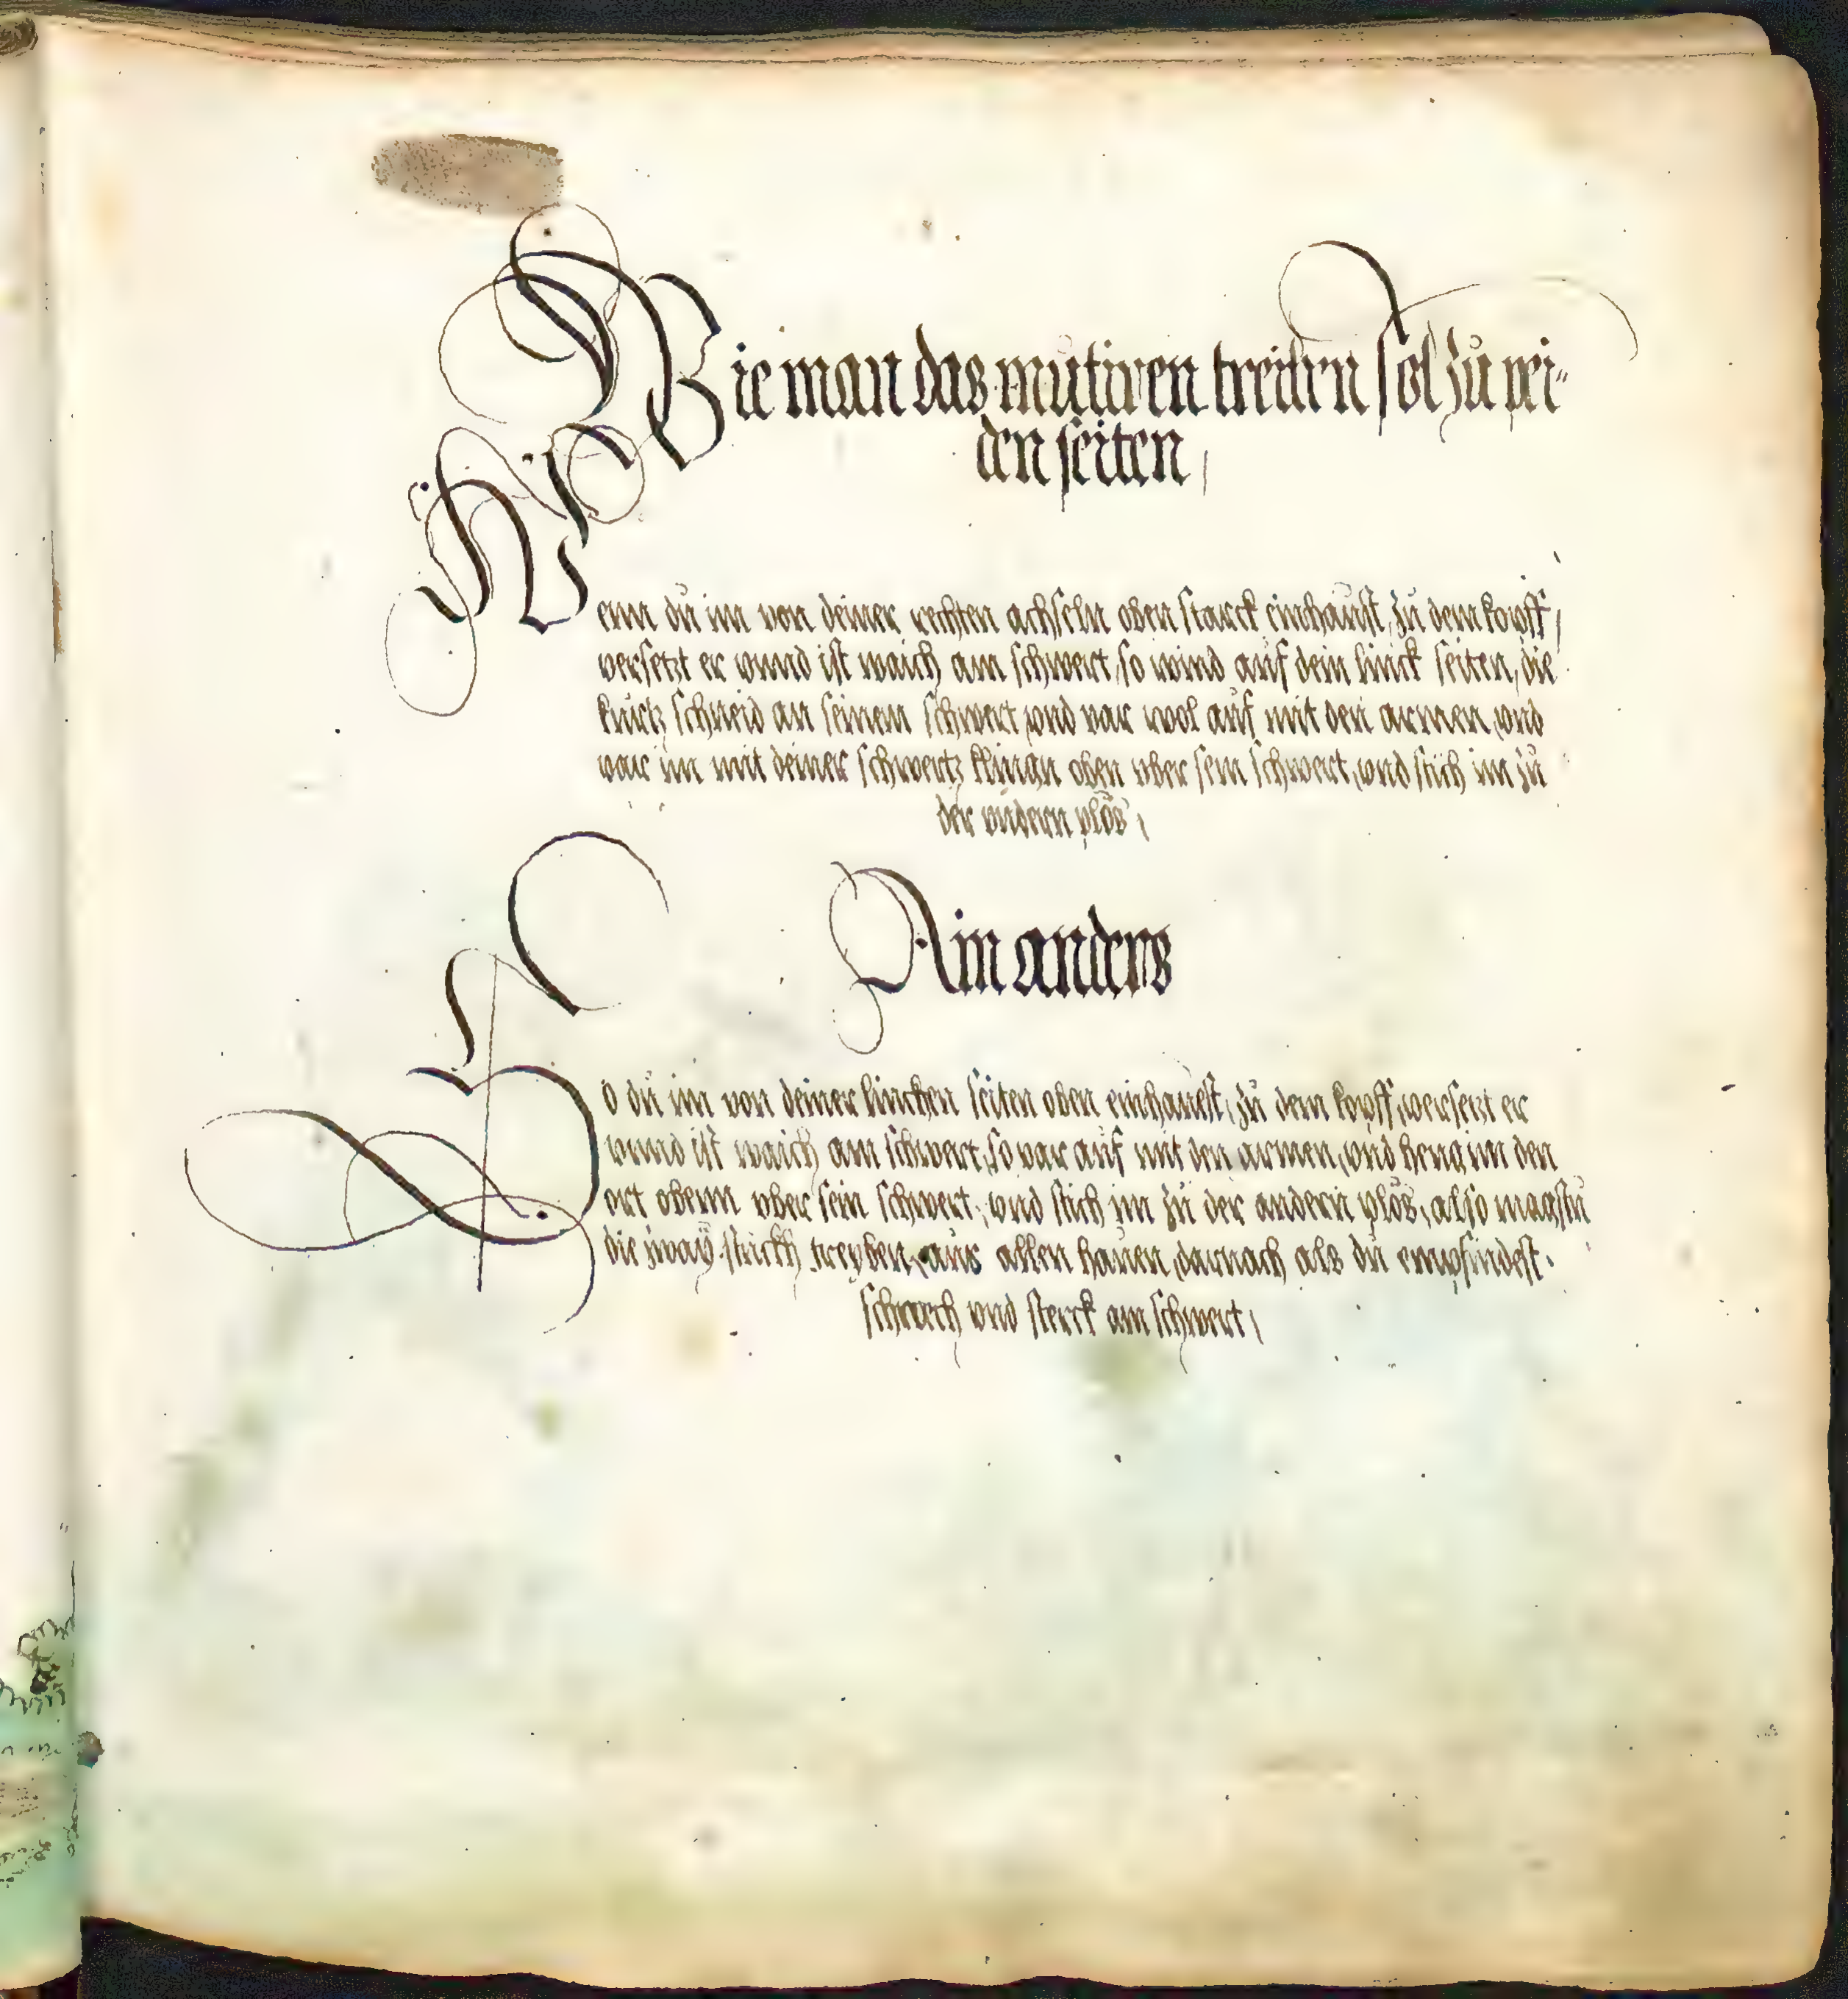 Wie man das mutiren treiben sol zu pei-
den seiten,
Wenn du im von deiner rechten achseln oben starck einhaust, zu dem kopff,
versetzt er vnnd ist waich am schwert, so wind auf dein linck seiten, die
kurtz schneid an seinem schwert, vnd var wol auf mit den armen, vnd
var im mit deiner schwertz klingn oben vber sein schwert, vnd stich im zu
der vndern plös,
Ain anders
So du im von deiner lincken seiten oben einhauest, zu dem kopff, versetzt er
vnnd ist waich am schwert, so var auf mit den armen, vnd heng im den
ort obenn vber sein schwert, vnd stich im zu der andern plös, also magstu
die zway stückh treyben, aus allen hauen, darnach als du empfindest
schwech vnd sterck am schwert,